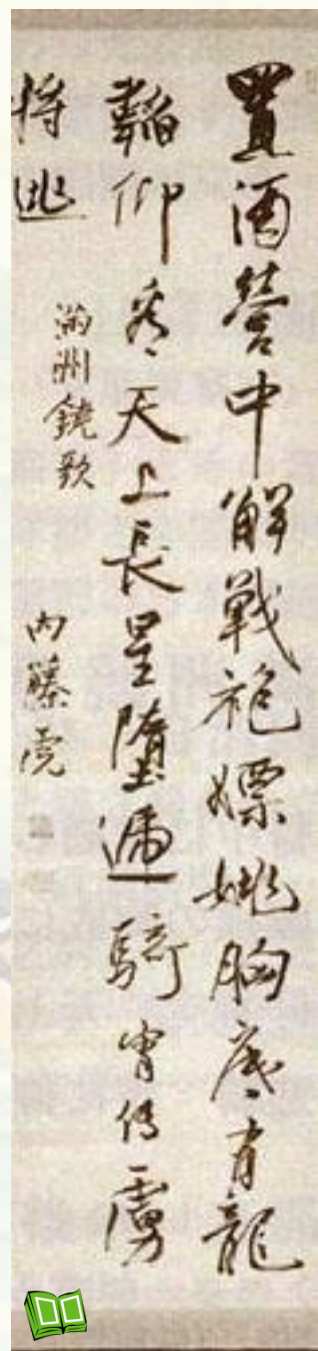 置酒營中解戰袍嫖姚胸底有龍
韜仰看天上長星墮逓騎宵傳虜
將逃
滿洲鐃歌
內藤虎